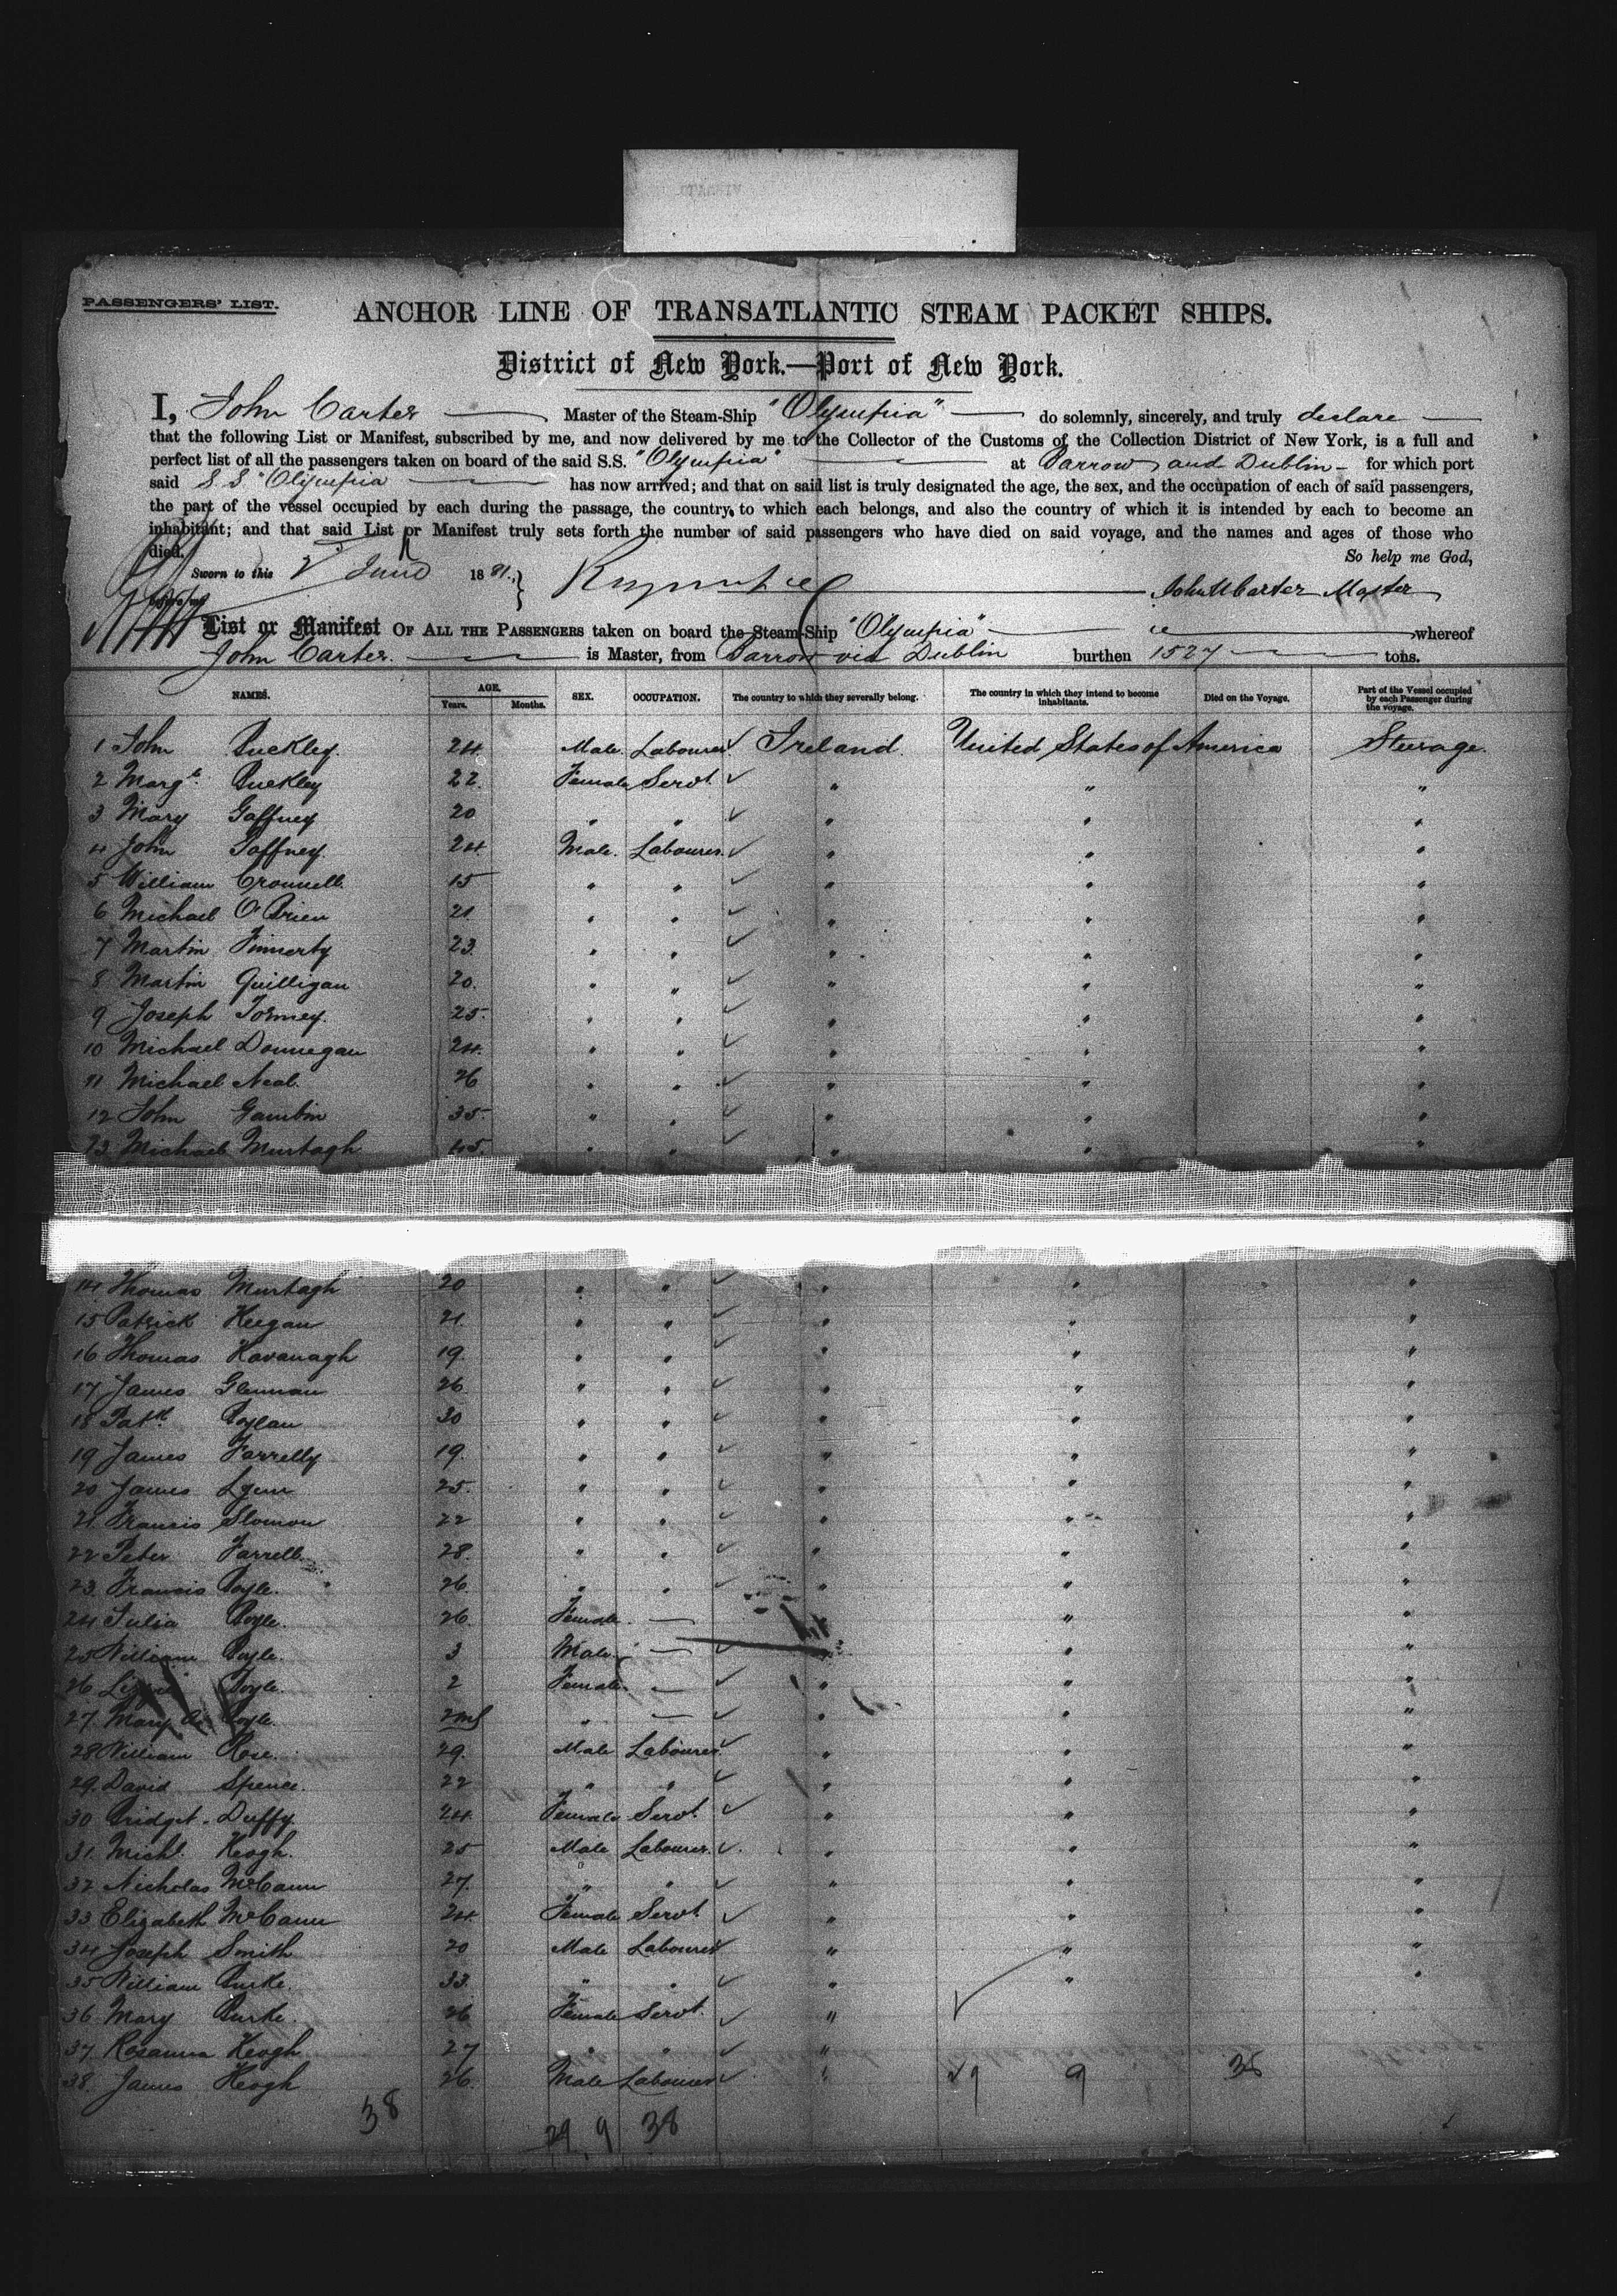 PASSENGERS' LIST.
ANCHOR LINE OF TRANSATLANTIC STEAM PACKET SHIPS.
District of New York.—Port of New York.
I, John Carter Master of the Steam-Ship "Olympia" do solemnly, sincerely, and truly declare
that the following List or Manifest, subscribed by me, and now delivered by me to the Collector of the Customs of the Collection District of New York, is a full and
perfect list of all the passengers taken on board of the said S.S. "Olympia" at Barrow and Dublin – for which port
said S.S "Olympia has now arrived; and that on said list is truly designated the age, the sex, and the occupation of each of said passengers,
the part of the vessel occupied by each during the passage, the country to which each belongs, and also the country of which it is intended by each to become an
inhabitant; and that said List or Manifest truly sets forth the number of said passengers who have died on said voyage, and the names and ages of those who
died. So help me God,
Sworn to this 2 June 1881. John Carter Master
before me
List or Manifest OF ALL THE PASSENGERS taken on board the Steam-Ship "Olympia" whereof
John Carter. is Master, from Barrow via Dublin burthen 1527 tons.
NAMES. AGE. Years. Months. SEX. OCCUPATION. The country to which they severally belong. The country in which they intend to become inhabitants. Died on the Voyage. Part of the Vessel occupied by each Passenger during the voyage.
1 John Buckley. 24. Male. Labourer ✓ Ireland. United States of America Steerage.
2 Margt. Buckley 22. Female Servt. ✓ " " "
3 Mary Gaffney 20 " " ✓ " " "
4 John Gaffney. 24. Male. Labourer. ✓ " " "
5 William Cronnell. 15 " " ✓ " " "
6 Michael O'Brien 21 " " ✓ " " "
7 Martin Finnerty 23. " " ✓ " " "
8 Martin Quilligan 20. " " ✓ " " "
9 Joseph Tormey. 25. " " ✓ " " "
10 Michael Donnegan 24. " " ✓ " " "
11 Michael Neal. 26 " " ✓ " " "
12 John 35. " " ✓ " " "
13 Michael Murtagh 45. " " ✓ " " "
14 Thomas Murtagh 20 " " ✓ " " "
15 Patrick Keegan 21. " " ✓ " " "
16 Thomas Kavanagh 19. " " ✓ " " "
17 James Glennan 26. " " ✓ " " "
18 Patk. Boylan 30 " " ✓ " " "
19 James Farrelly 19. " " ✓ " " "
20 James Lynn 25. " " ✓ " " "
21 Francis Slomon 22 " " ✓ " " "
22 Peter Farrell. 28. " " ✓ " " "
23. Francis Boyle. 26. " " ✓ " " "
24 Julia Boyle. 26. Female — " " "
25 William Boyle. 3 Male. — ✓ " " "
26 Boyle. 2 Female. — ✓ " " "
27. Mary A. Boyle. 2 ms " — ✓ " " "
28 William Rose. 29. Male Labourer ✓ " " "
29. David Spence. 22 " " ✓ " " "
30 Bridget Duffy. 24. Female Servt. ✓ " " "
31. Michl. Keogh. 25 Male Labourer. ✓ " " "
32 Nicholas McCann 27. " " ✓ " " "
33. Elizabeth McCann 24. Female Servt. ✓ " " "
34 Joseph Smith 20 Male Labourer ✓ " " "
35 William Burke. 33. " " ✓ " " "
36. Mary Burke. 26 Female Servt. ✓ "
37. Rosanna Keogh 27 " " ✓ "
38. James Keogh 26. Male Labourer ✓ " 9
38 29 9 38